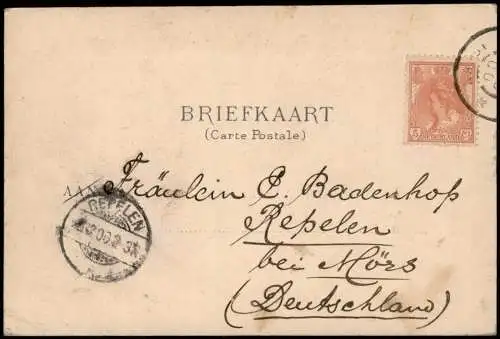 BRIEFKAART
(Carte Postale)
5
NEDERLAND
AAN
Fräulein E. Badenhop
Repelen
bei Mörs
(Deutschland)
REPELEN